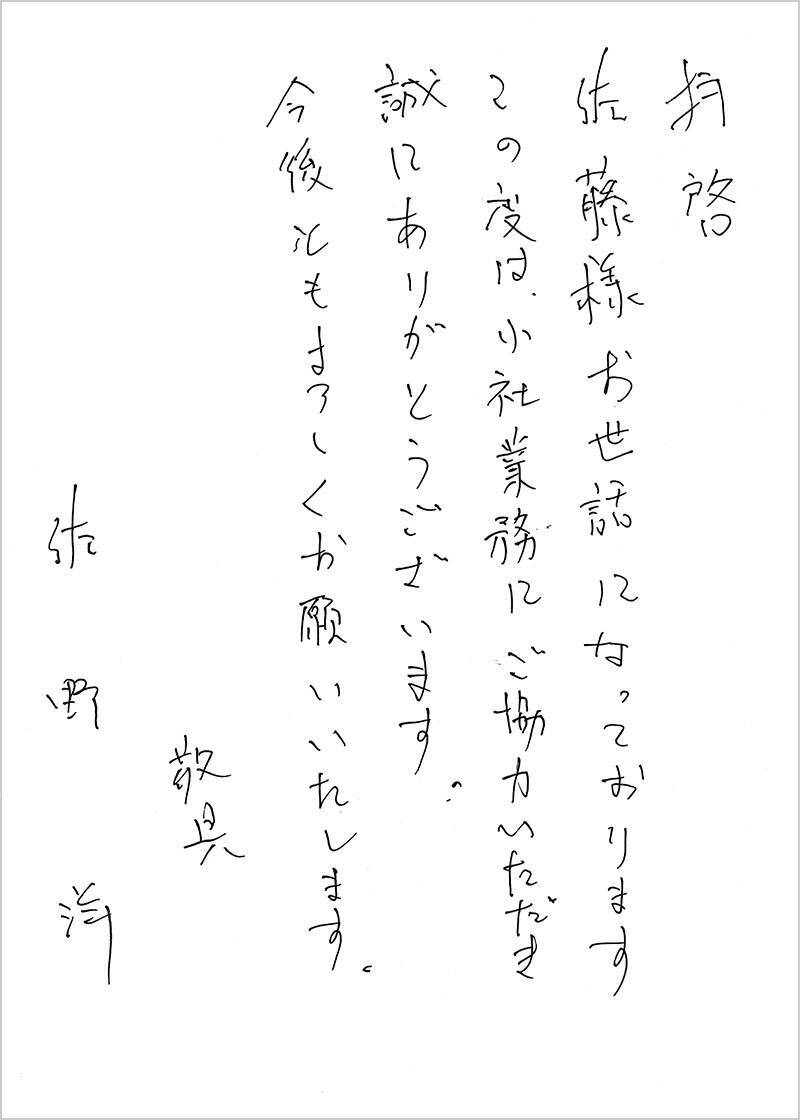 拝啓
佐藤様お世話になっております
この度は、小社業務にご協力いただき
誠にありがとうございます。
今後ともよろしくお願いいたします。
敬具
佐野洋